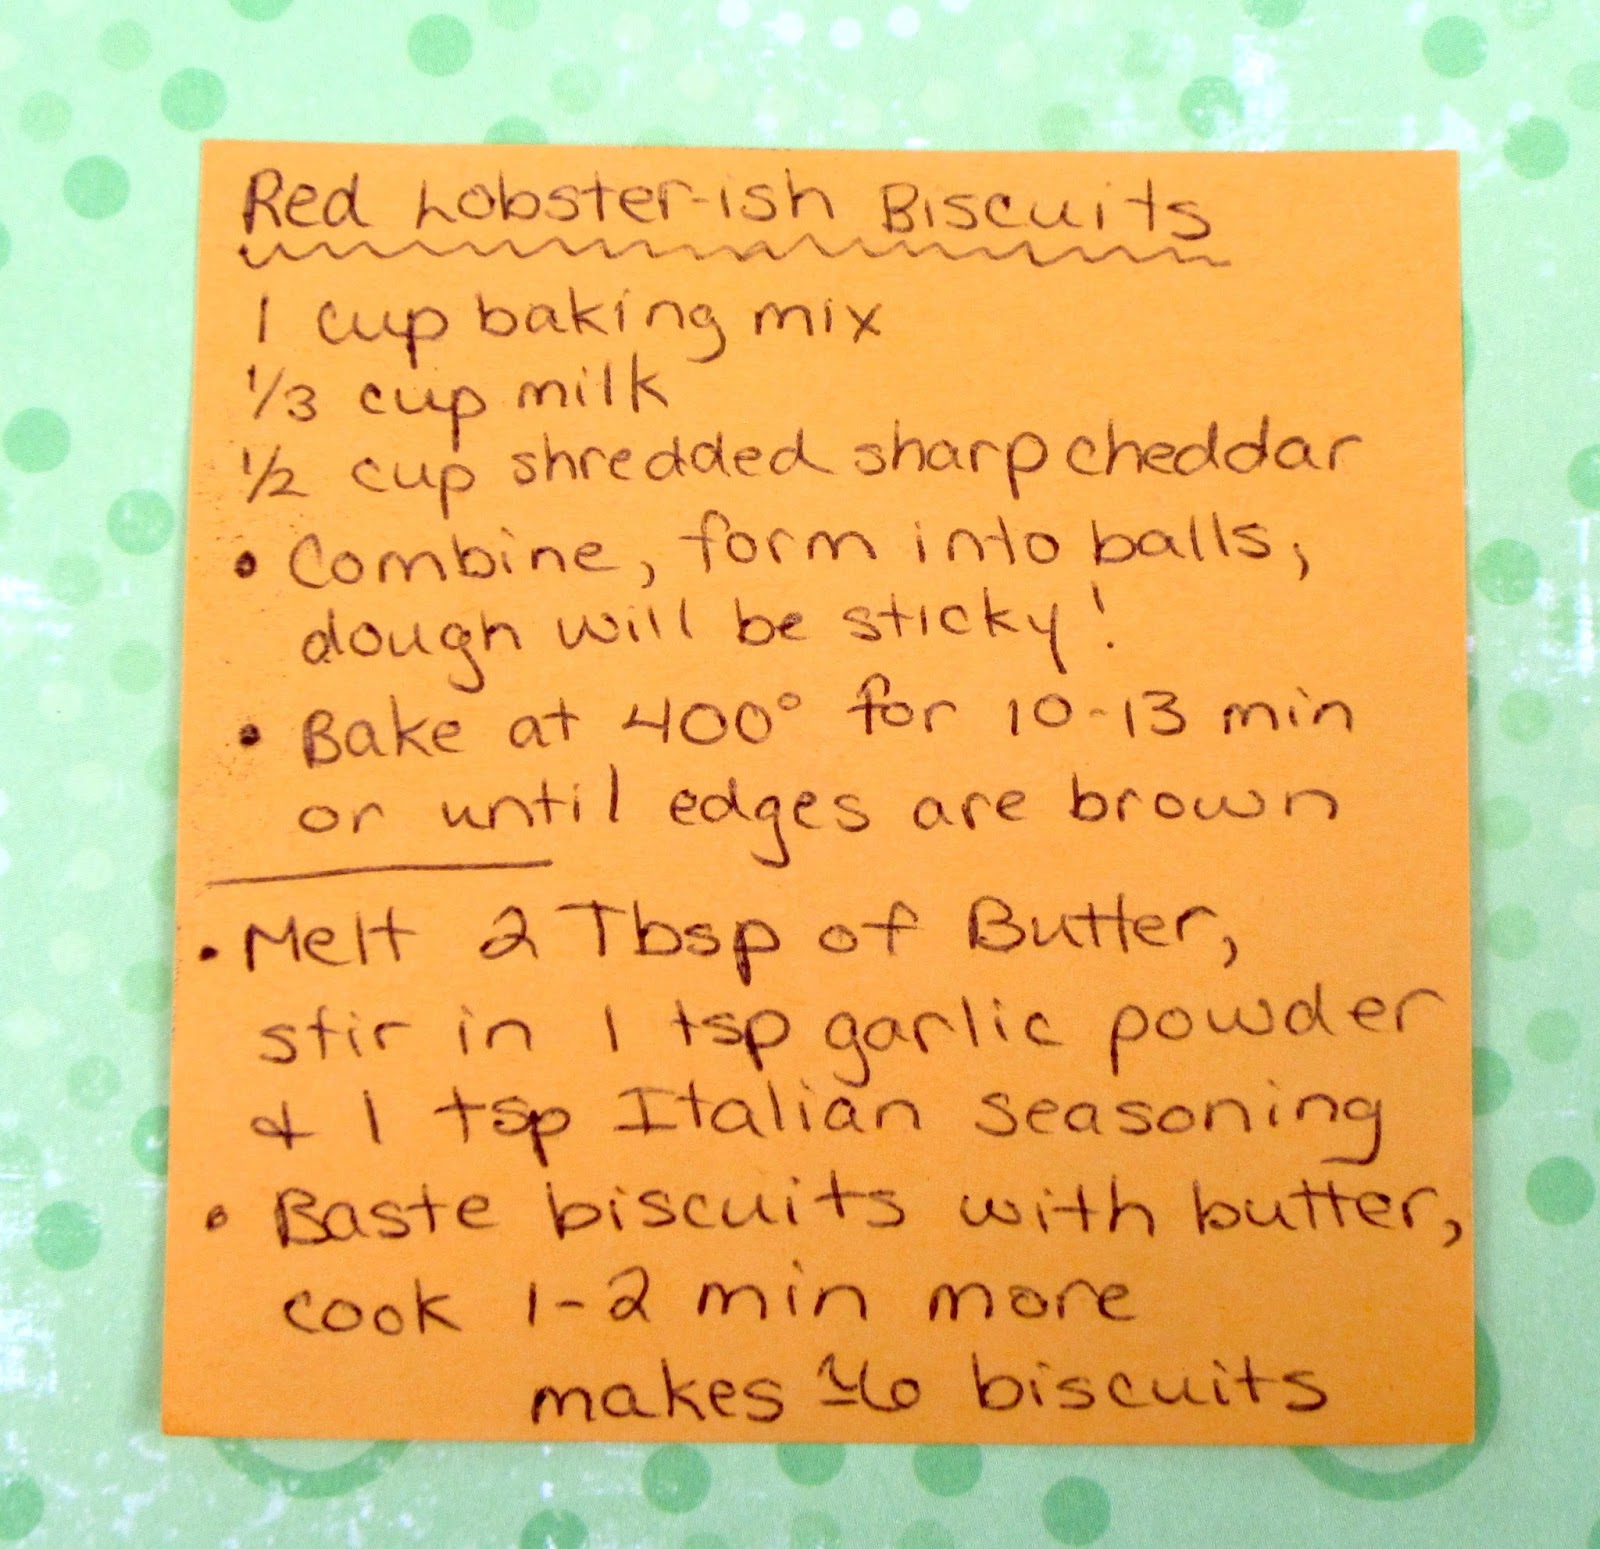 Red Lobster-ish Biscuits
1 cup baking mix
1/3 cup milk
1/2 cup shredded sharp cheddar
• Combine, form into balls,
dough will be sticky!
• Bake at 400° for 10-13 min
or until edges are brown
• Melt 2 Tbsp of Butter,
stir in 1 tsp garlic powder
& 1 tsp Italian seasoning
• Baste biscuits with butter,
cook 1-2 min more
makes ≃6 biscuits